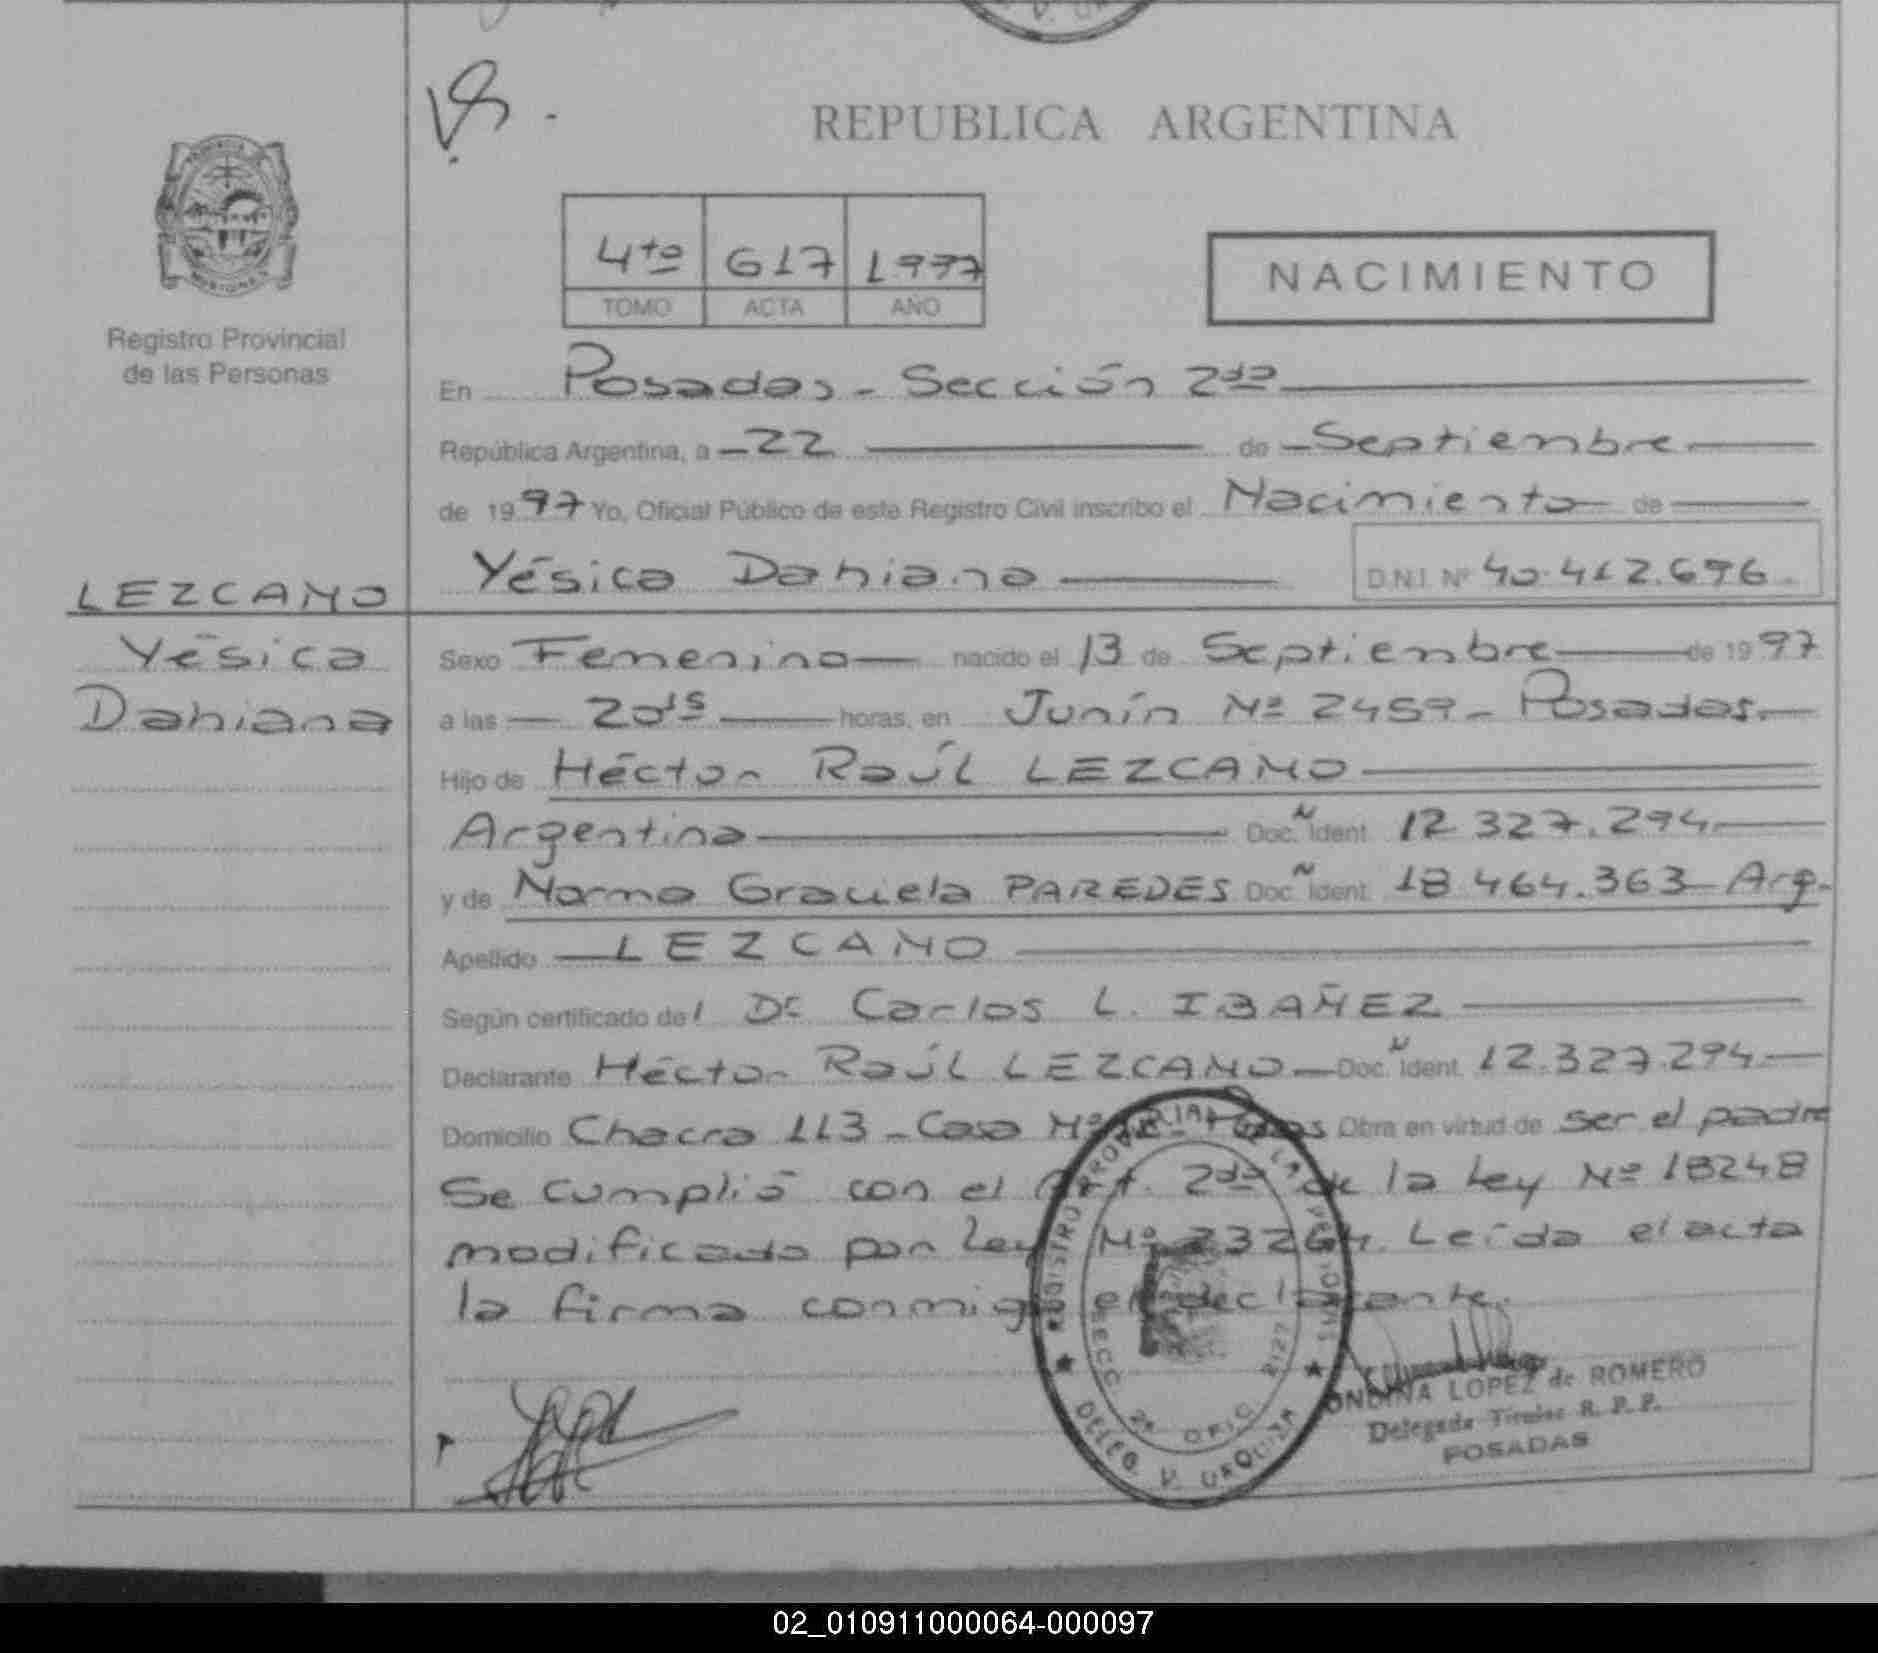 REPUBLICA ARGENTINA
4to 617 1997
TOMO ACTA AÑO
NACIMIENTO
Registro Provincial
de las Personas
En Posadas - Sección 2da
República Argentina, a 22 de Septiembre
de 1997 Yo, Oficial Público de este Registro Civil inscribo el Nacimiento de
Yésica Dahiana D.N.I. Nº 40.412.696
LEZCANO
Yésica
Dahiana
Sexo Femenino nacido el 13 de Septiembre de 1997
a las 20hs horas, en Junín Nº 2459 - Posadas.
Hijo de Héctor Raúl LEZCANO
Argentina Doc. Ident. 12.327.294
y de Norma Graciela PAREDES Doc. Ident. 18.464.363 Arg.
Apellido LEZCANO
Según certificado del Dr Carlos L. IBAÑEZ
Declarante Héctor Raúl LEZCANO Doc. Ident. 12.327.294
Domicilio Chacra 113 - Casa Nº Obra en virtud de ser el padre
Se cumplió con el Art. 2do de la Ley Nº 18248
modificado por Ley Nº 23264. Leída el acta
la firma conmigo el declarante.
REGISTRO PROVINCIAL DE LAS PERSONAS
SECC. 2a OFIC. 2127
DELEG. V. URQUIZA
ONDINA LOPEZ de ROMERO
Delegada Titular R. P. P.
POSADAS
02_010911000064-000097